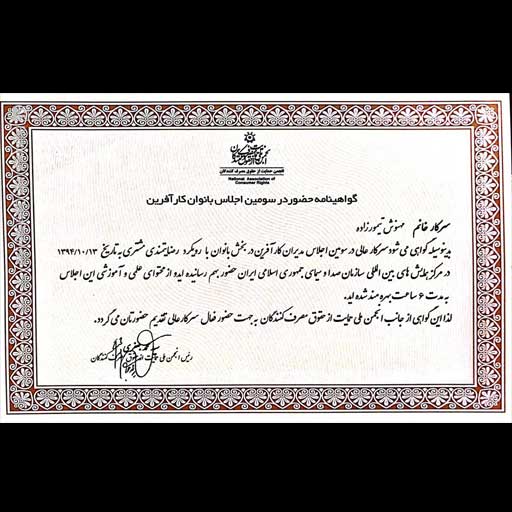 انجمن حمایت از حقوق مصرف کنندگان
National Association of
Consumer Rights
گواهینامه حضور در سومین اجلاس بانوان کارآفرین
سرکار خانم مهنوش تیمورزاده
بدینوسیله گواهی می شود سرکار عالی در سومین اجلاس مدیران کارآفرین در بخش بانوان با رویکرد رضایتمندی مشتری به تاریخ ۱۳۹۴/۱۰/۱۳
در مرکز همایش های بین المللی سازمان صدا و سیمای جمهوری اسلامی ایران حضور بهم رسانیده اید و از محتوای علمی و آموزشی این اجلاس
به مدت ۶ ساعت بهره مند شده اید.
لذا این گواهی از جانب انجمن ملی حمایت از حقوق مصرف کنندگان به جهت حضور فعال سرکار عالی تقدیم حضورتان می گردد.
رئیس انجمن ملی حمایت از حقوق مصرف کنندگان